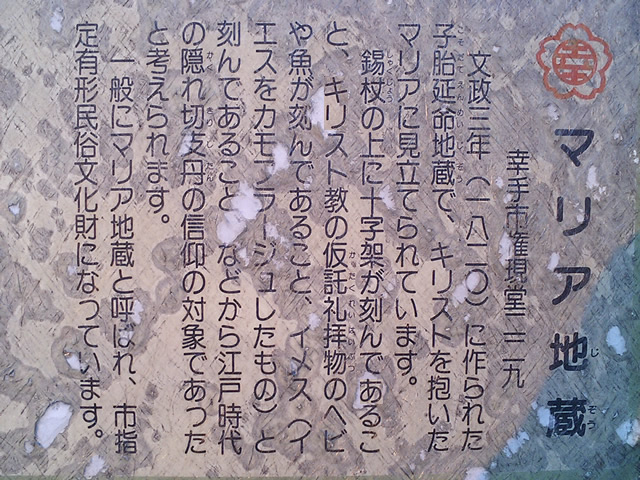 マリア地蔵
幸手市権現堂
文政三年(一八二〇)に作られた
子胎延命地蔵で、キリストを抱いた
マリアに見立てられています。
錫杖の上に十字架が刻んであるこ
と、キリスト教の仮託礼拝物のヘビ
や魚が刻んであること、イメス(イ
エスをカモフラージュしたもの)と
刻んであること などから江戸時代
の隠れ切支丹の信仰の対象であった
と考えられます。
一般にマリア地蔵と呼ばれ、市指
定有形民俗文化財になっています。